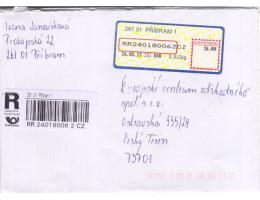 Ivana Janoušková
Prokopská 22
261 01 Příbram
261 01 PŘÍBRAM 1
RR240180062CZ
26,00
R
261 01 Příbram 1
RR 24018006 2 CZ
Evropské centrum odškodného
spol s r.o.
Ostravská
Český Těšín
73701